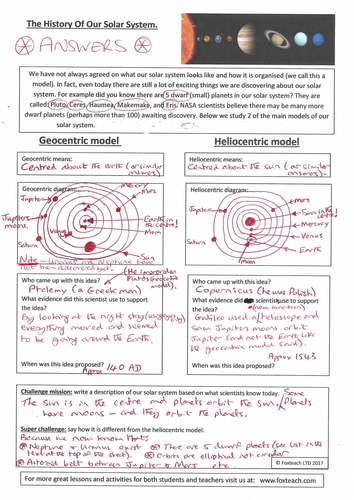 The History Of Our Solar System.
ANSWERS
We have not always agreed on what our solar system looks like and how it is organised (we call this a
model). In fact, even today there are still a lot of exciting things we are discovering about our solar
system. For example did you know there are 5 dwarf (small) planets in our solar system? They are
called: Pluto, Ceres, Haumea, Makemake, and Eris. NASA scientists believe there may be many more
dwarf planets (perhaps more than 100) awaiting discovery. Below we study 2 of the main models of our
solar system.
Geocentric model
Geocentric means:
Centred about the Earth (or similar
Geocentric diagram:
Mercury
Mars
Jupiter
Jupiters
moons.
Earth in
the centre!
Moon
Venus
Saturn
Sun
Note - Uranus and Neptune have
not been discovered yet.
Who came up with this idea?
Ptolemy (a Greek man)
What evidence did this scientist use to support
the idea?
By looking at the night sky
everything moved and seemed
to be going around the Earth.
When was this model proposed?
Approx 140 AD
Heliocentric model
Heliocentric means:
Centred about the Sun (or similar
Heliocentric diagram:
Mars
Jupiter
Sun in the
centre!
Mercury
Venus
Saturn
Earth
Moon
Who came up with this idea?
Copernicus (he was Polish)
What evidence did scientists use to support
the idea?
(new invention)
Galileo used a telescope and
saw Jupiters moons orbit
Jupiter (and not the Earth like
the geocentric model said).
When was this idea proposed?
Approx 1543
Challenge mission: write a description of our solar system based on what scientists know today.
The Sun is in the centre and planets orbit the Sun. Some planets
have moons - and they orbit the planets.
Super challenge: say how it is different from the heliocentric model.
Because we now know that:
Neptune & Uranus exist
There are 5 dwarf planets (see list in
text at the top of the sheet).
Orbits are elliptical not circular
Asteroid belt between Jupiter & Mars etc.
© Foxteach LTD 2017
For more great lessons and activities for both students and teachers visit us at: www.foxteach.com